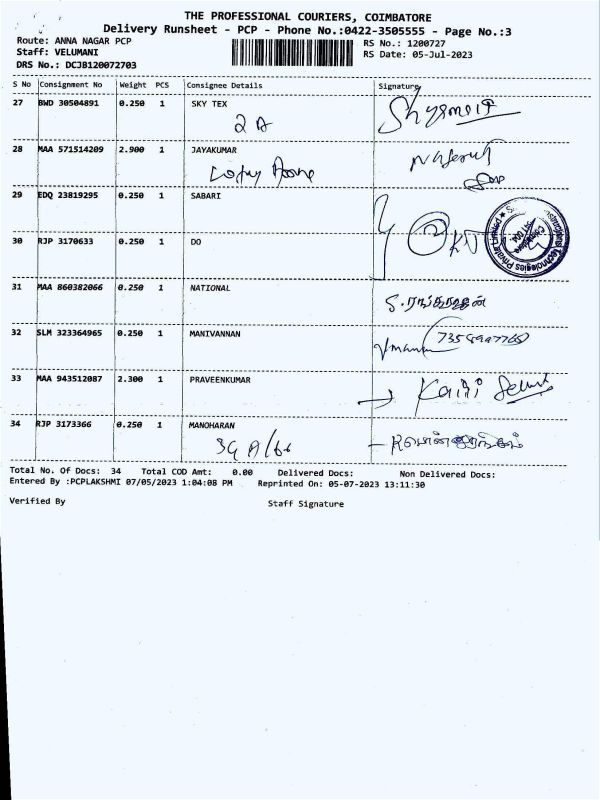 THE PROFESSIONAL COURIERS, COIMBATORE
Delivery Runsheet - PCP - Phone No.:0422-3505555 - Page No.:3
Route: ANNA NAGAR PCP RS No.: 1200727
Staff: VELUMANI RS Date: 05-Jul-2023
DRS No.: DCJB120072703
S No Consignment No Weight PCS Consignee Details Signature
27 BWD 30504891 0.250 1 SKY TEX
2 A
28 MAA 571514209 2.900 1 JAYAKUMAR
29 EDQ 23819295 0.250 1 SABARI
30 RJP 3170633 0.250 1 DO
31 MAA 860382066 0.250 1 NATIONAL
S. ரங்கராஜன்
32 SLM 323364965 0.250 1 MANIVANNAN
33 MAA 943512087 2.300 1 PRAVEENKUMAR
34 RJP 3173366 0.250 1 MANOHARAN
Total No. Of Docs: 34 Total COD Amt: 0.00 Delivered Docs: Non Delivered Docs:
Entered By :PCPLAKSHMI 07/05/2023 1:04:08 PM Reprinted On: 05-07-2023 13:11:30
Verified By Staff Signature